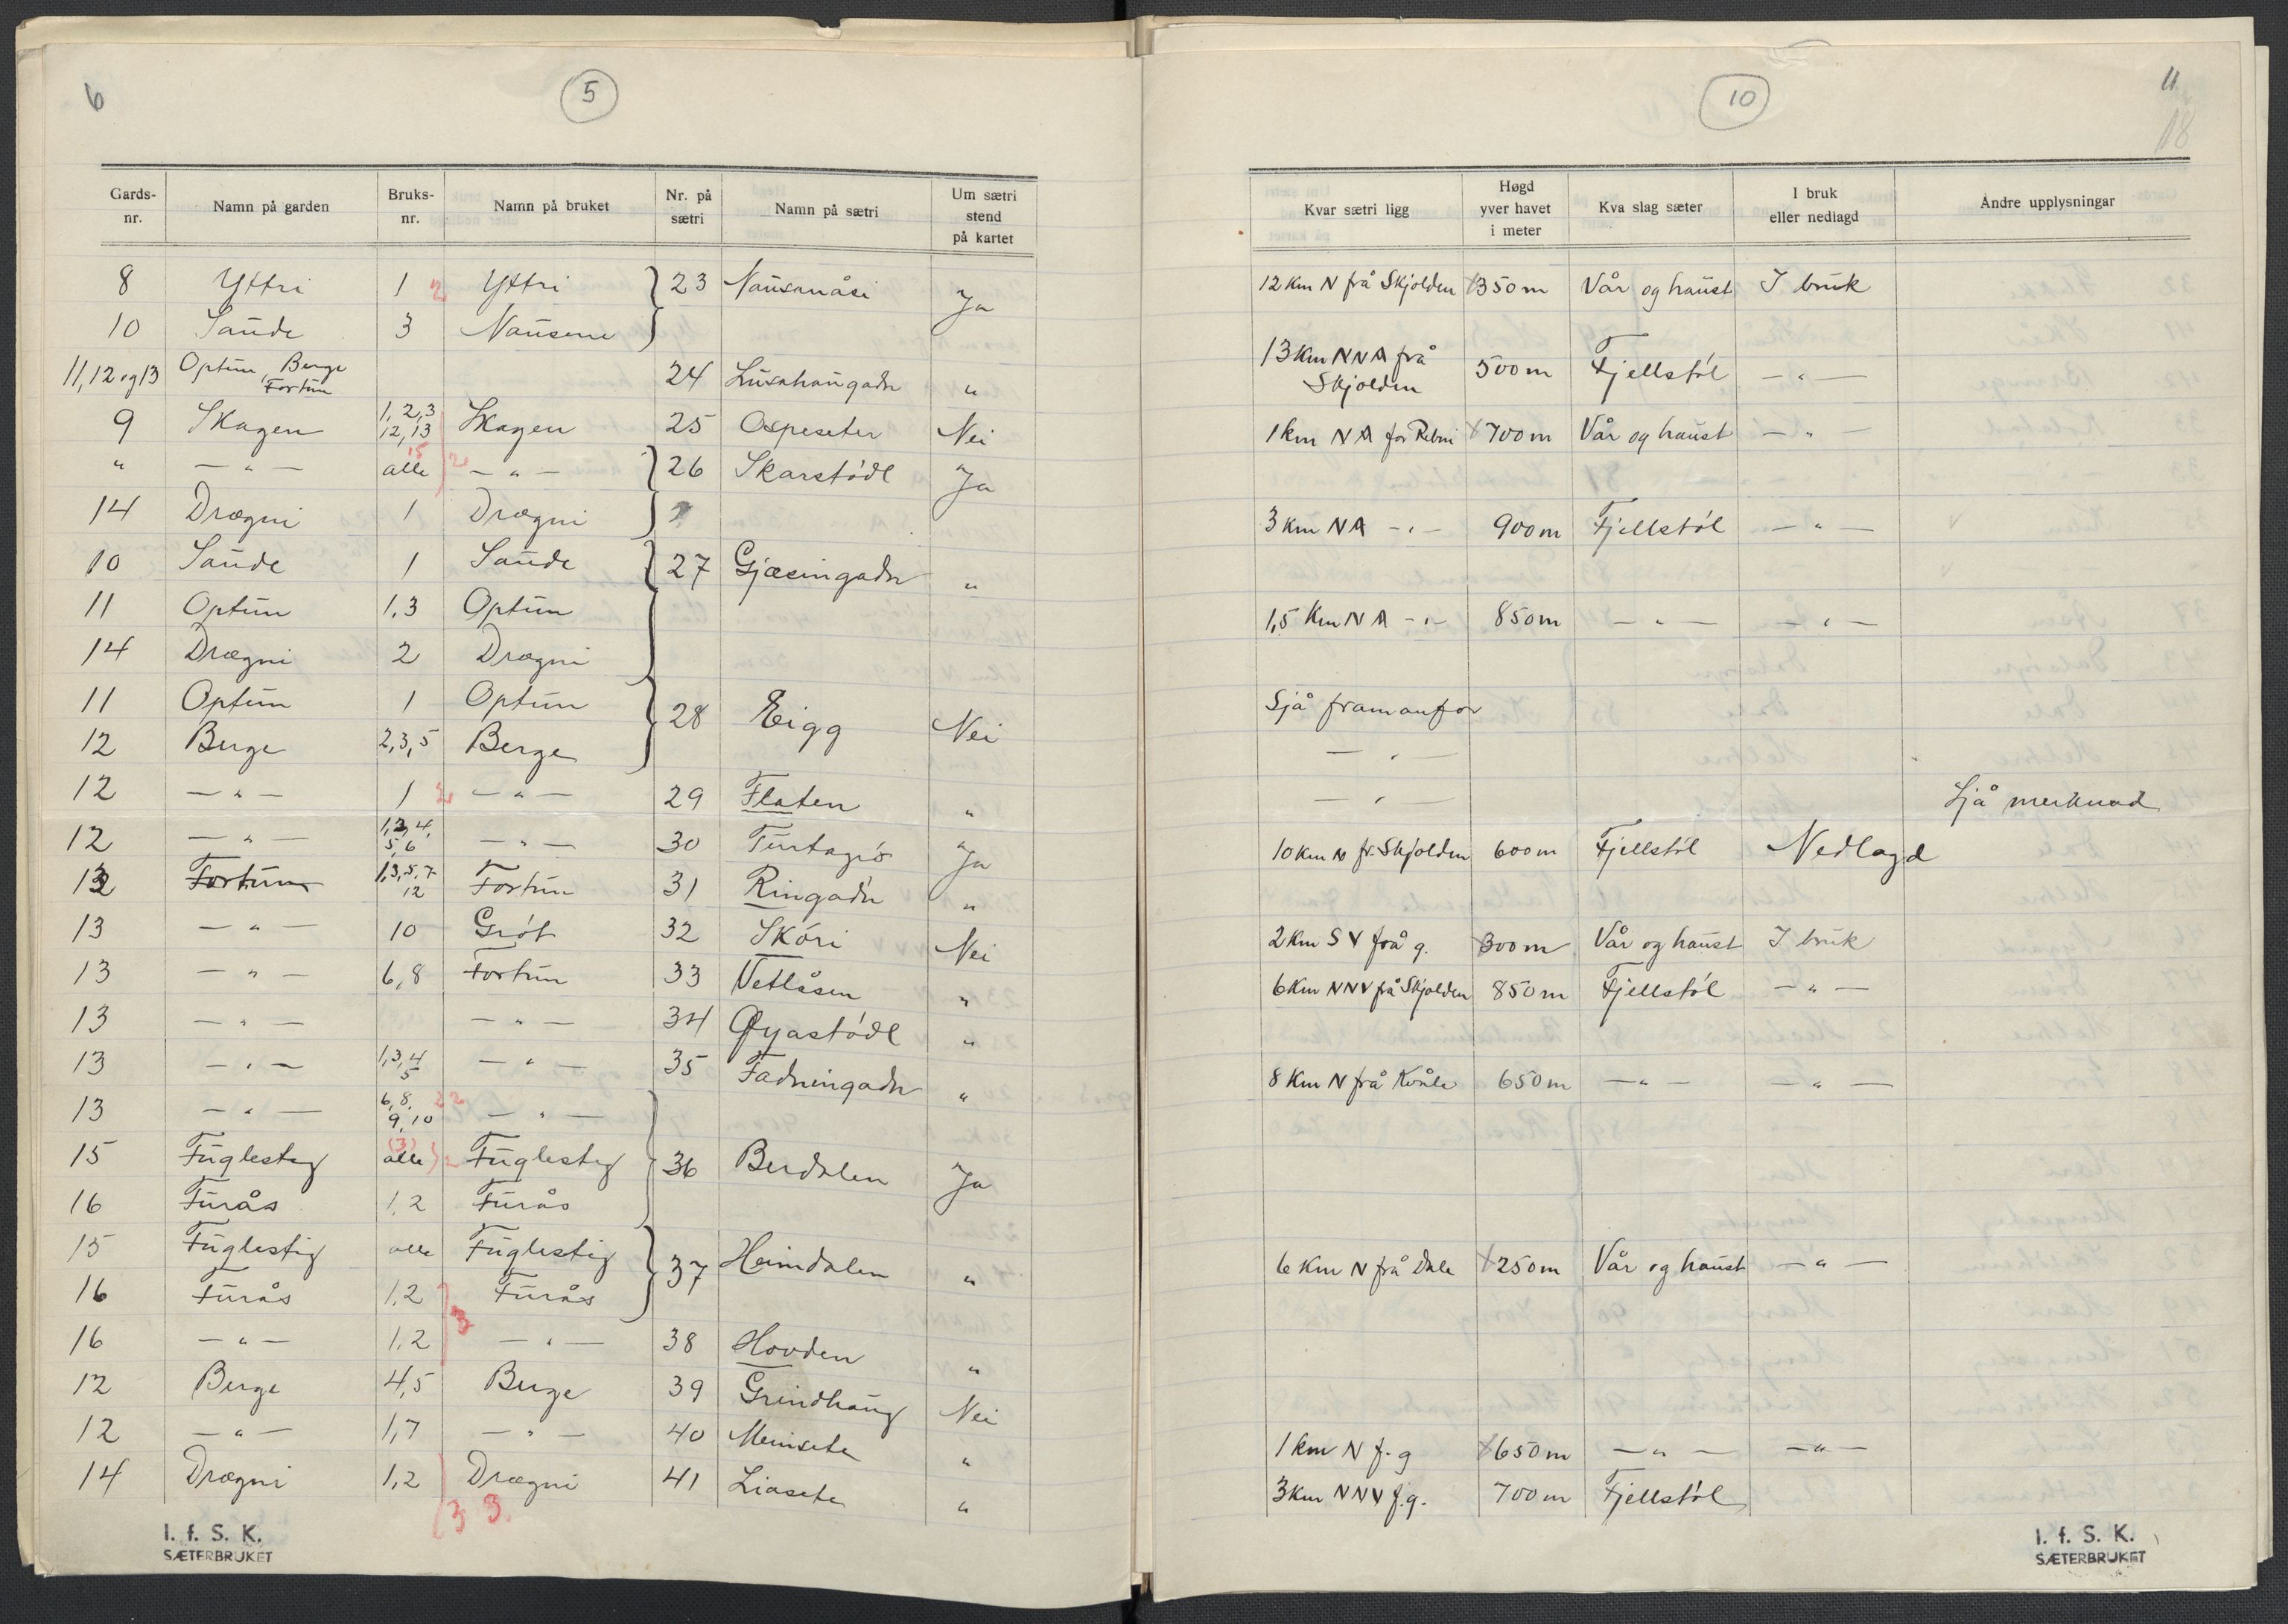 6
5
Gards-nr. Namn på garden Bruks-nr. Namn på bruket Nr. på sætri Namn på sætri Um sætri stend på kartet
8 Yttri 1 2 Yttri 23 Nausanåsi Ja
10 Saude 3 Nausene
11, 12 og 13 Optun, Berge Fortun 24 Lusahaugadn "
9 Skagen 1, 2, 3 12, 13 Skagen 25 Ospeseter Nei
" — " — alle 15 2 — " — 26 Skarstødl Ja
14 Drægni 1 Drægni
10 Saude 1 Saude 27 Gjæsingadn "
11 Optun 1,3 Optun
14 Drægni 2 Drægni
11 Optun 1 Optun 28 Eigg Nei
12 Berge 2,3,5 Berge
12 — " — 1 2 — " — 29 Flaten "
12 — " — 5, 6 — " — 30 Turtagrø Ja
13 Fortun 1,3,5,7 12 Fortun 31 Ringadn "
13 — " — 10 Grót 32 Skóri Nei
13 — " — 6,8 Fortun 33 Vetlåsen "
13 — " — — " — 34 Øyastødl "
13 — " — 1,3,4 5 — " — 35 Fadningadn "
13 — " — 6,8, 9,10 22 — " —
15 Fuglesteg alle (3) 2 Fuglesteg 36 Berdalen Ja
16 Furås 1,2 Furås
15 Fuglestig alle Fuglestig 37 Heimdalen "
16 Furås 1,2 3 Furås
16 — " — 1,2 — " — 38 Hovden "
12 Berge 4,5 Berge 39 Grindhaug Nei
12 — " — 1,7 — " — 40 Meinsete "
14 Drægni 1,2 Drægni 41 Liasete "
3 3
I. f. S. K.
SÆTERBRUKET
10
11
18
Kvar sætri ligg Høgd yver havet i meter Kva slag sæter I bruk eller nedlagd Andre upplysningar
12 km N frå Skjolden 350 m Vår og haust I bruk
13 km NNA frå Skjolden 500 m Fjellstøl — " —
1 km NA for Rebni 700 m Vår og haust — " —
3 km NA — " — 900 m Fjellstøl — " —
1,5 km NA — " — 850 m — " — — " —
Sjå framanfor
— " —
— " — Sjå merknad
10 km N fr. Skjolden 600 m Fjellstøl Nedlagd
2 km SV frå g. 300 m Vår og haust I bruk
6 km NNV frå Skjolden 850 m Fjellstøl — " —
8 km N frå Kvåle 650 m — " — — " —
6 km N frå Dale 250 m Vår og haust — " —
1 km N f. g 650 m — " — — " —
3 km NNV f. g. 700 m Fjellstøl
I. f. S. K.
SÆTERBRUKET